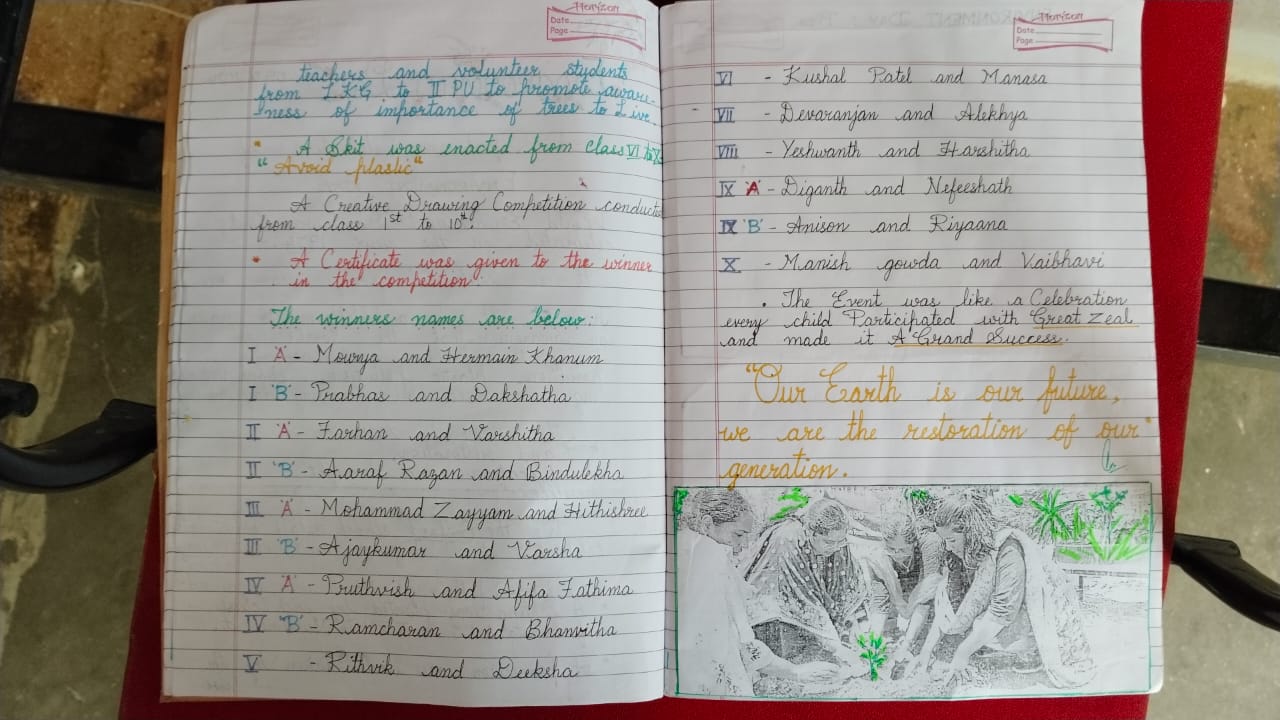 Horizon
Date
Page
teachers and volunteer students
from LKG to II PU to promote aware-
ness of importance of trees to Live.
• A Skit was enacted from class VI to X
" Avoid plastic"
A Creative Drawing Competition conducted
from class 1st to 10th.
• A Certificate was given to the winner
in the competition
The winners names are below:
I 'A' - Mourya and Hermain Khanum
I 'B' - Prabhas and Dakshatha
II 'A' - Farhan and Varshitha
II 'B' - Aaraf Razan and Bindulekha
III 'A' - Mohammad Zayyam and Hithishree
III 'B' - Ajaykumar and Varsha
IV 'A' - Pruthvish and Afifa Fathima
IV 'B' - Ramcharan and Bhanvitha
V - Rithvik and Deeksha
Horizon
Date
Page
VI - Kushal Patel and Manasa
VII - Devaranjan and Alekhya
VIII - Yeshwanth and Harshitha
IX 'A' - Diganth and Nefeeshath
IX 'B' - Anison and Riyaana
X - Manish gowda and Vaibhavi
• The Event was like a Celebration
every child Participated with Great Zeal
and made it A Grand Success.
"Our Earth is our future,
we are the restoration of our"
generation.